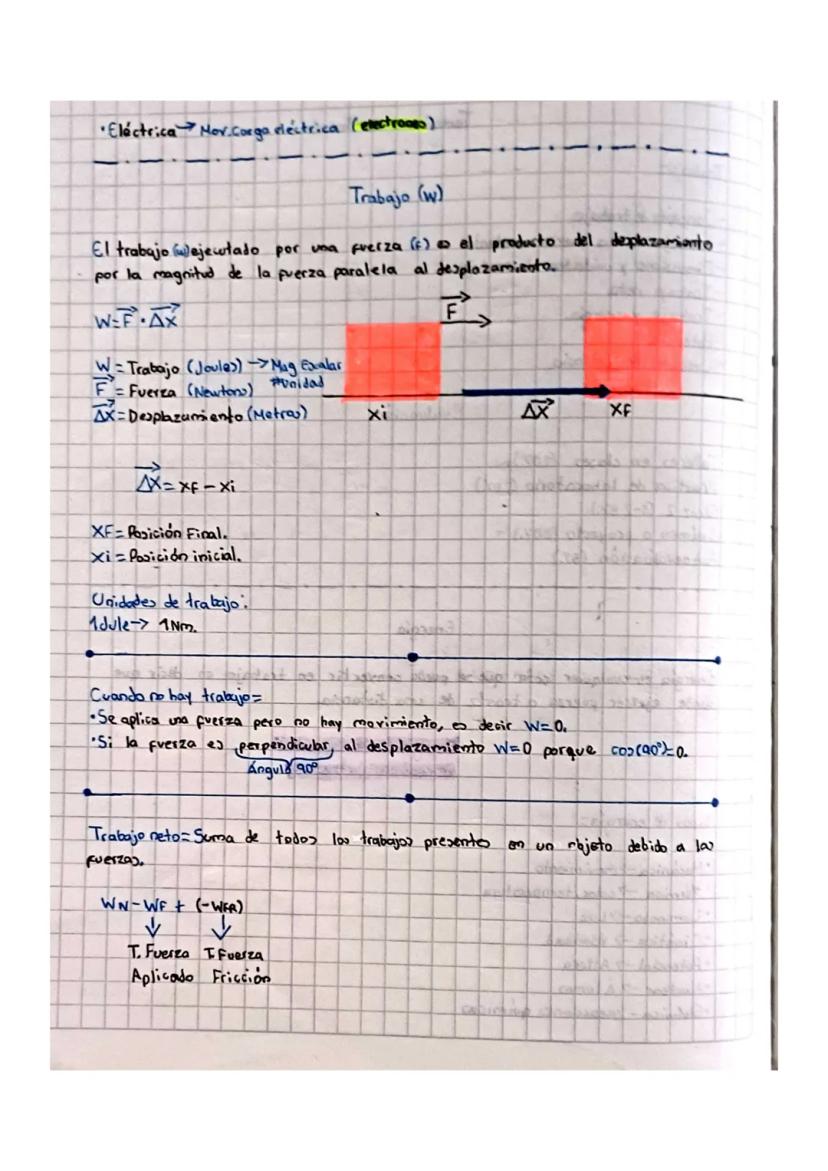 •Eléctrica→ Mov.Carga eléctrica (electrones)
Trabajo (W)
El trabajo (w) ejecutado por una fuerza (F) es el producto del desplazamiento
por la magnitud de la fuerza paralela al desplazamiento.
W=F⃗ • Δx⃗
F⃗
W = Trabajo (Joules) → Mag Escalar
#Unidad
F⃗ = Fuerza (Newtons)
Δx⃗ = Desplazamiento (Metros)
xi
Δx⃗
xf
Δx⃗ = xf - xi
XF = Posición Final.
Xi = Posición inicial.
Unidades de trabajo:
1Jule→ 1Nm.
Cuando no hay trabajo=
•Se aplica una fuerza pero no hay movimiento, es decir W=0.
•Si la fuerza es perpendicular, al desplazamiento W=0 porque cos(90°)=0.
Ángulo 90°
Trabajo neto= Suma de todos los trabajos presentes en un objeto debido a las
fuerzas.
WN-WF + (-WFR)
T. Fuerza T.Fuerza
Aplicado Fricción